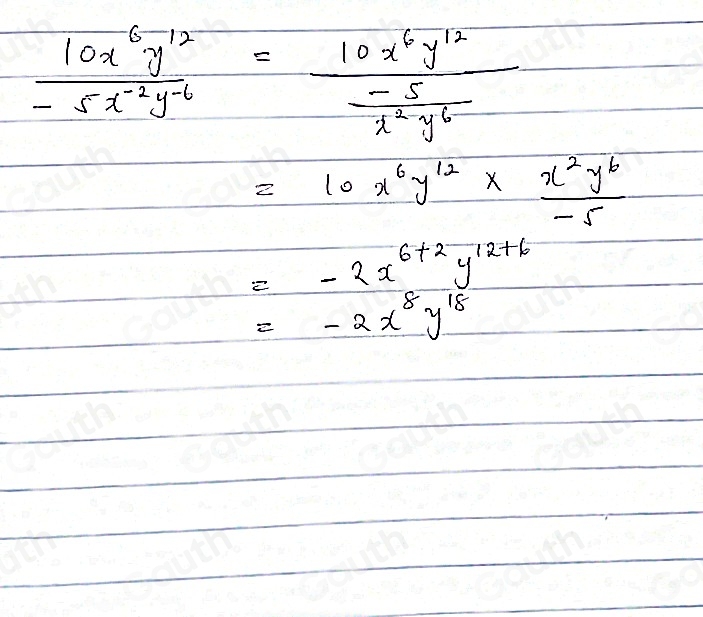 10x⁶y¹² / -5x⁻²y⁻⁶ = 10x⁶y¹² / (-5 / x²y⁶)
= 10x⁶y¹² × x²y⁶ / -5
= -2x⁶⁺²y¹²⁺⁶
= -2x⁸y¹⁸